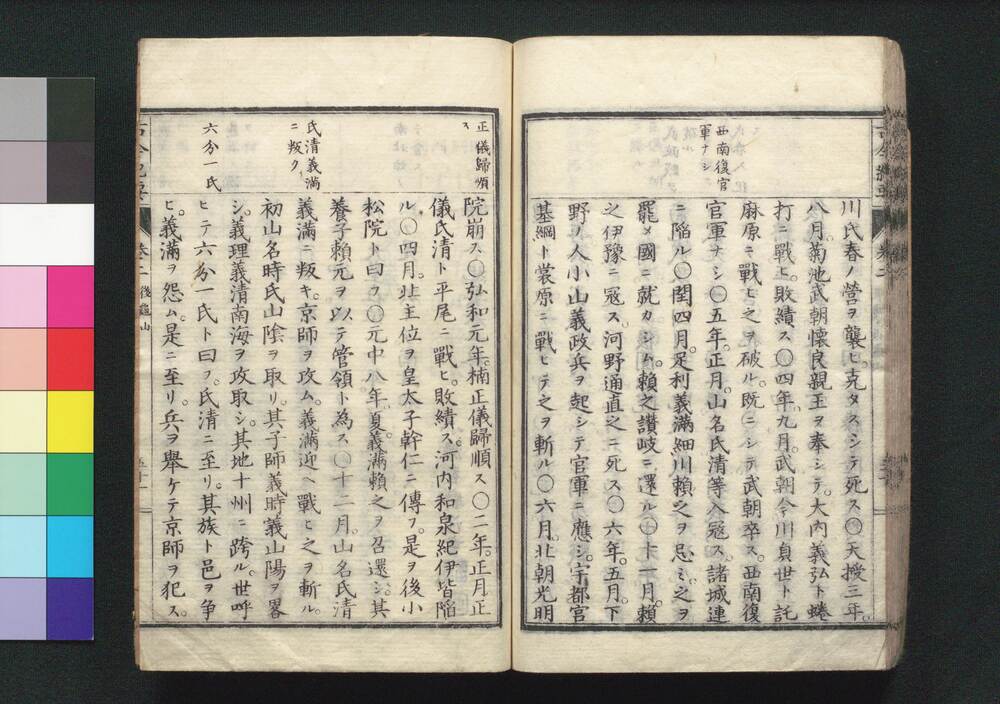 西南復官
軍ナシ
川氏春ノ營ヲ襲ヒ。克タスシテ死ス〇天授三年。
八月。菊池武朝懷良親王ヲ奉シテ。大内義弘ト蜷
打ニ戰ヒ。敗績ス〇四年。九月。武朝今川貞世ト託
麻原ニ戰ヒ之ヲ破ル。既ニシテ武朝卒ス。西南復
官軍ナシ〇五年。正月。山名氏清等入寇ス。諸城連
ニ陷ル〇閏四月。足利義滿細川賴之ヲ忌ミ。之ヲ
罷メ國ニ就カシム。賴之讚岐ニ還ル〇十一月。賴
之伊豫ニ寇ス。河野通直之ニ死ス〇六年。五月。下
野ノ人小山義政兵ヲ起シテ官軍ニ應シ。宇都宮
基綱ト裳原ニ戰ヒテ之ヲ斬ル〇六月。北朝光明
正儀歸順
ス
氏清義滿
ニ叛ク
六分一氏
院崩ス〇弘和元年。楠正儀歸順ス〇二年。正月正
儀氏清ト平尾ニ戰ヒ。敗績ス。河内和泉紀伊皆陷
ル〇四月。北主位ヲ皇太子幹仁ニ傳フ。是ヲ後小
松院ト曰フ〇元中八年。夏。義滿賴之ヲ召還シ。其
養子賴元ヲ以テ管領ト為ス〇十二月。山名氏清
義滿ニ叛キ。京師ヲ攻ム。義滿迎ヘ戰ヒ之ヲ斬ル。
初山名時氏山陰ヲ取リ。其子師義時義山陽ヲ畧
シ。義理義清南海ヲ攻取シ。其地十州ニ跨ル。世呼
ヒテ六分一氏ト曰フ。氏清ニ至リ。其族ト邑ヲ爭
ヒ。義滿ヲ怨ム。是ニ至リ。兵ヲ舉ケテ京師ヲ犯ス。
卷二 後龜山
五十一